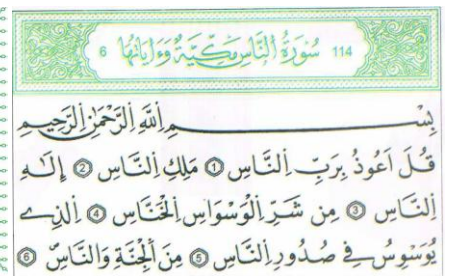 114 سُورَةُ اُ۬لنَّاسِ مَكِّيَّةٌ وَءَايَاتُهَا 6
بِسْمِ اِ۬للَّهِ اِ۬لرَّحْمَٰنِ اِ۬لرَّحِيمِ
قُلَ اَعُوذُ بِرَبِّ اِ۬لنَّاسِ 1 مَلِكِ اِ۬لنَّاسِ 2 إِلَٰهِ
اِ۬لنَّاسِ 3 مِن شَرِّ اِ۬لْوَسْوَاسِ اِ۬لْخَنَّاسِ 4 اِ۬لذِے
يُوَسْوِسُ فِے صُدُورِ اِ۬لنَّاسِ 5 مِنَ اَ۬لْجِنَّةِ وَالنَّاسِ 6